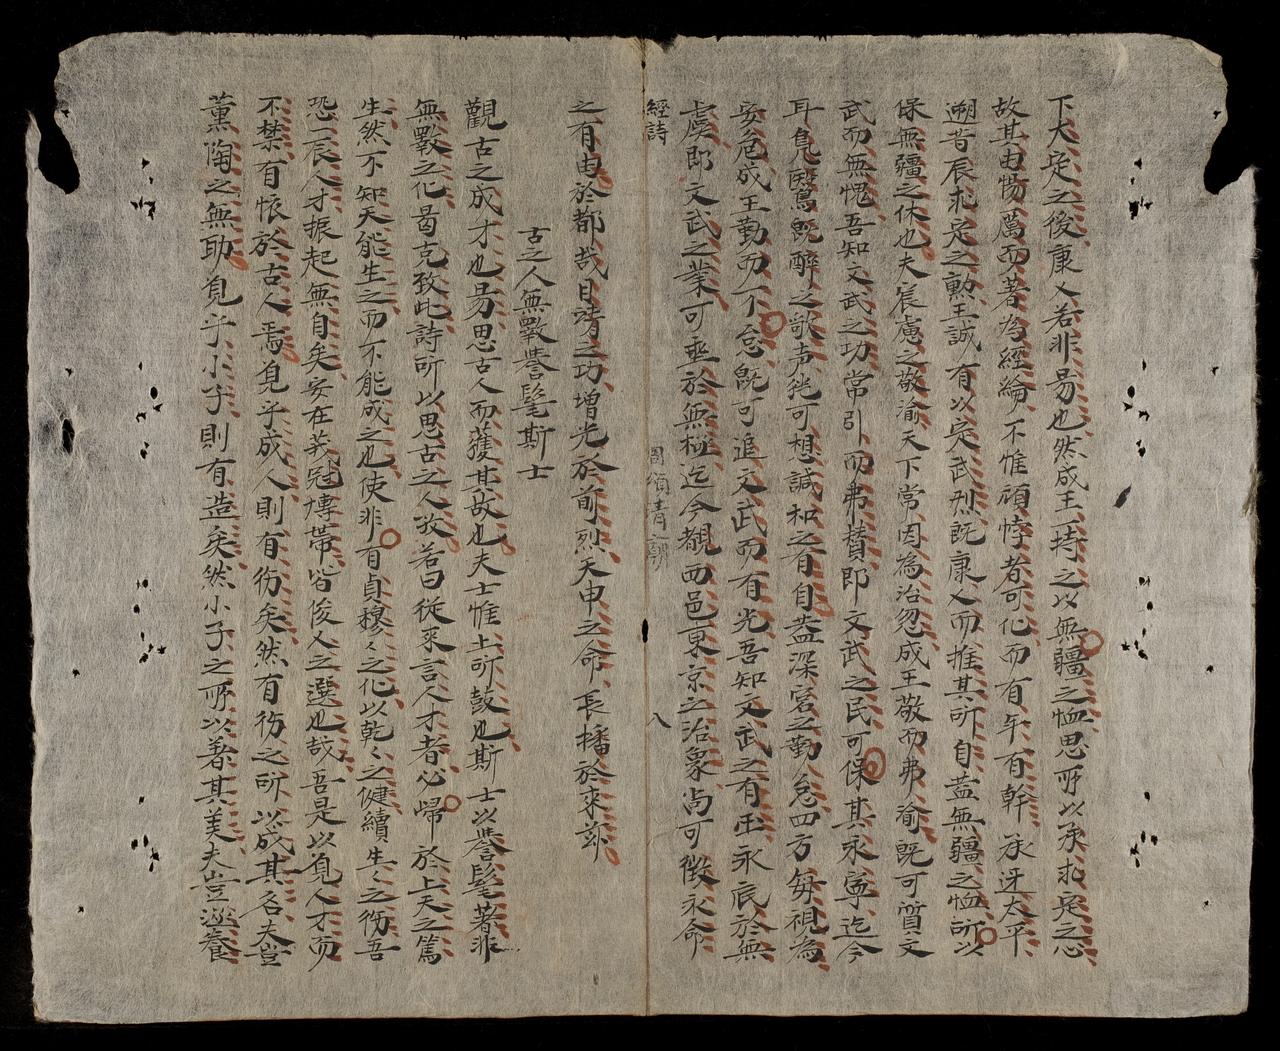 下大定之後康乂若非易也然成王特之以無疆之恤思所以承求定之心
故其由惕厲而著為經綸不惟頑悖者可化而有年有幹承迓太平
溯昔辰求定之勲王誠有以定武烈既康乂而推其所自蓋無疆之恤所以
保無疆之休也夫宸慮之敬渝天下常因為治忽成王敬而弗渝既可質文
武而無愧吾知文武之功常引而弗替即文武之民可保其永寧迄今
耳鳧鷖既醉之歌声徃可想諴和之有自蓋深宮之勤怠四方每視為
安危成王勤而不怠既可追文武而有光吾知文武之有丕永底於無
虞即文武之業可垂於無極迄今覩西邑東京之治象尚可徴永命
經詩
周頌清廟
八
之有由於都哉日靖之功增光於前烈天申之命長播於來茲
古之人無斁譽髦斯士
觀古之成才也易思古人而獲其故也夫士惟上所鼓也斯士以譽髦著非
無斁之化曷克致此詩所以思古之人致若曰従來言人才者必帰於上天之篤
生然不知天能生之而不能成之也使非有貞穆〻之化以乾〻之健續生〻之衍吾
恐一辰人才振起無自矣安在峩冠博帶皆俊人之選也哉吾是以覓人才而
不禁有懷於古人焉覓乎成人則有衍矣然有衍之所以成其名夫豈
薰陶之無助覓乎小子則有造矣然小子之所以著其美夫豈涵養